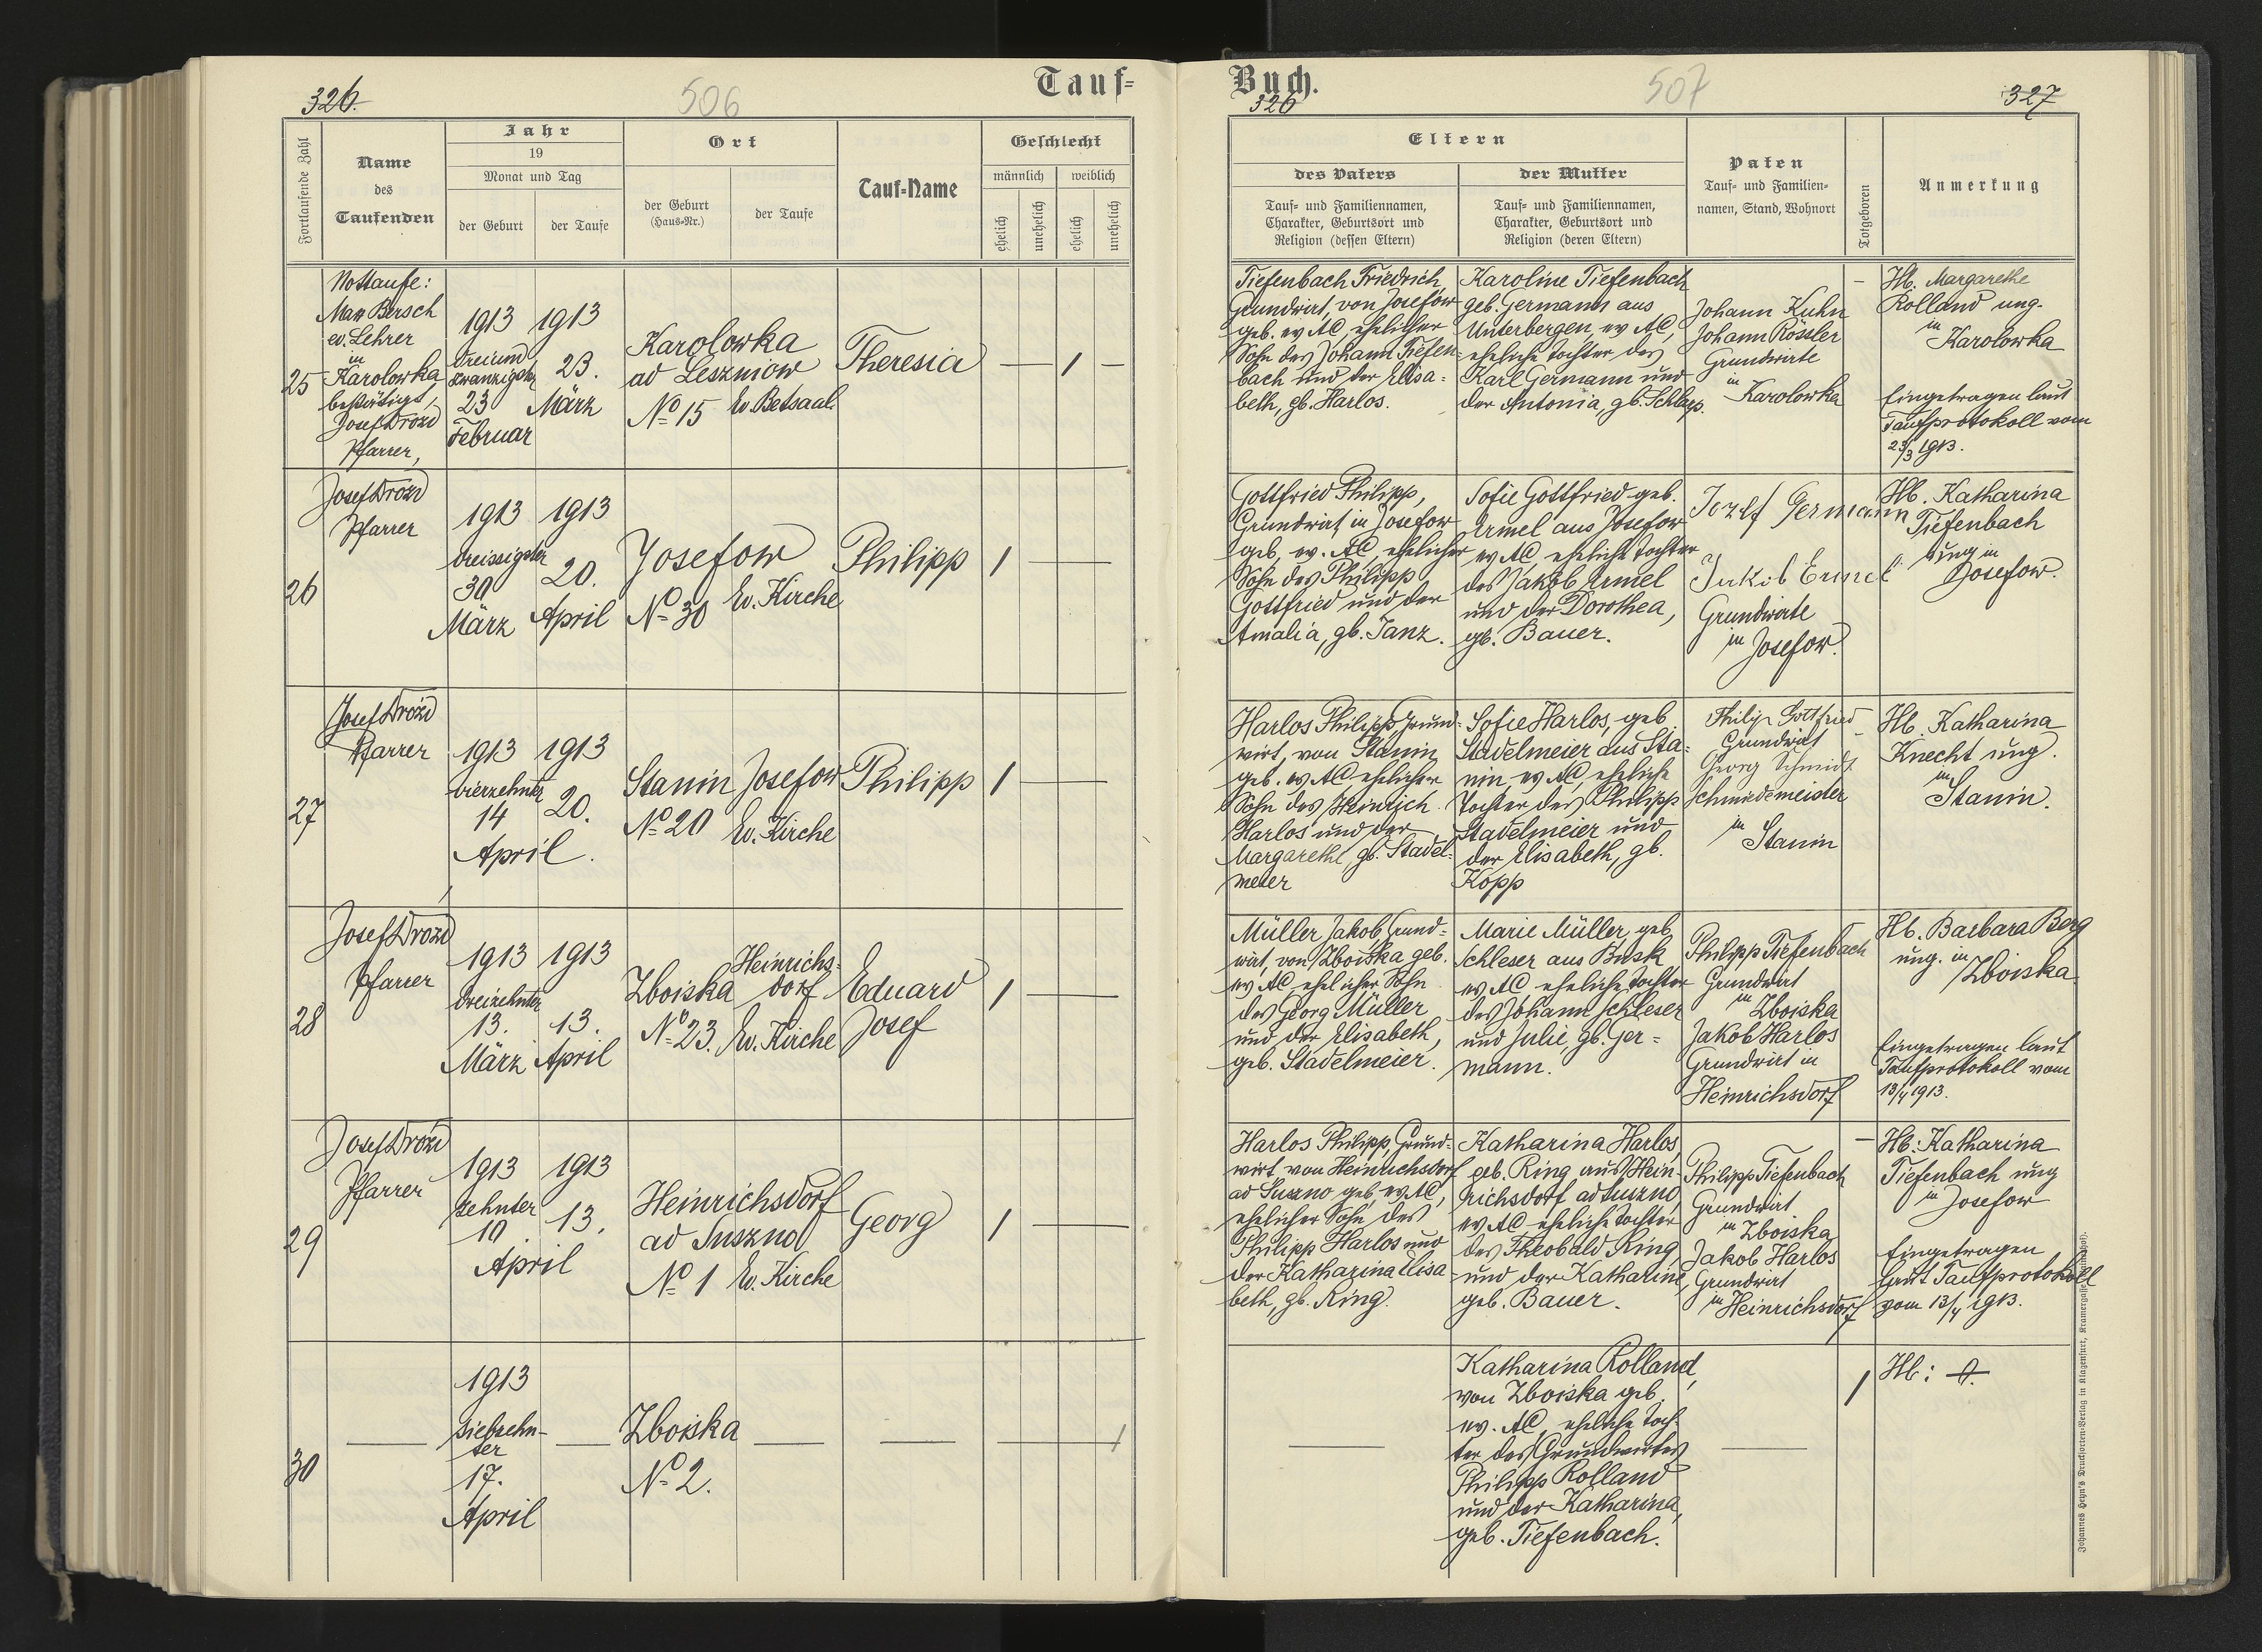 326.
506
Tauf-
Fortlaufende Zahl
Name
des
Taufenden
Jahr
19
Monat und Tag
der Geburt
der Taufe
Ort
der Geburt
(Haus-Nr.)
der Taufe
Tauf-Name
Geschlecht
männlich
weiblich
ehelich
unehelich
ehelich
unehelich
25
Nottaufe:
Max Bersch
ev. Lehrer
in
Karolowka
bestätigt,
Josef Drozd
Pfarrer,
1913
dreiund
zwanzigster
23
Februar
1913
23.
März
Karolowka
ad Leszniow
No 15
Ev. Betsaal.
Theresia
— 1 —
26
Josef Drozd
Pfarrer
1913
dreissigster
30
März
1913
20.
April
Josefow
No 30
Ev. Kirche
Philipp
1 —
27
Josef Drozd
Pfarrer
1913
vierzehnter
14
April.
1913
20.
Stanin
No 20
Josefow
Ev. Kirche
Philipp
1 —
28
Josef Drozd
Pfarrer
1913
dreizehnter
13.
März
1913
13.
April
Zboiska
No 23.
Heinrichs-
dorf
Ev. Kirche
Eduard
Josef
1 —
29
Josef Drozd
Pfarrer
1913
zehnter
10
April
1913
13.
Heinrichsdorf
ad Suszno
No 1
Ev. Kirche
Georg
1 —
30
—
1913
siebzehn-
ter
17.
April
—
Zboiska
No 2.
—
—
— 1
Buch.
326
507
327
Eltern
des Vaters
Tauf- und Familiennamen,
Charakter, Geburtsort und
Religion (dessen Eltern)
der Mutter
Tauf- und Familiennamen,
Charakter, Geburtsort und
Religion (deren Eltern)
Paten
Tauf- und Familien-
namen, Stand, Wohnort
Totgeboren
Anmerkung
Tiefenbach Friedrich,
Grundwirt, von Josefow
geb. ev AC, ehelicher
Sohn des Johann Tiefen-
bach und der Elisa-
beth, gb. Harlos.
Karoline Tiefenbach
geb. Germann aus
Unterbergen, ev AC,
eheliche Tochter des
Karl Germann und
der Antonia, gb. Schlapp.
Johann Kuhn
Johann Rössler
Grundwirte
in
Karolowka
—
Hb. Margarethe
Rolland ung.
in
Karolowka
Eingetragen laut
Taufprotokoll vom
23/3 1913.
Gottfried Philipp,
Grundwirt in Josefow
geb. ev. AC, ehelicher
Sohn des Philipp
Gottfried und der
Amalia, gb. Janz.
Sofie Gottfried geb.
Ermel aus Josefow
ev AC, eheliche Tochter
des Jakob Ermel
und der Dorothea,
gb. Bauer.
Jozef Germann
Jakob Ermel
Grundwirte
in Josefow.
Hb. Katharina
Tiefenbach
ung in
Josefow.
Harlos Philipp, Grund-
wirt, von Stanin
geb. ev. AC ehelicher
Sohn des Heinrich
Harlos und der
Margarethe, gb. Stadel-
meier
Sofie Harlos, geb.
Stadelmeier aus Sta-
nin ev AC, eheliche
Tochter des Philipp
Stadelmeier und
der Elisabeth, gb.
Kopp
Philip Gottfried
Grundwirt
Georg Schmidt
Schmiedemeister
in
Stanin
—
Hb. Katharina
Knecht ung.
in
Stanin.
Müller Jakob, Grund-
wirt, von Zboiska geb.
ev AC, ehelicher Sohn
des Georg Müller
und der Elisabeth,
geb. Stadelmeier.
Marie Müller, geb.
Schleser aus Busk
ev AC eheliche Tochter
des Johann Schleser
und Julie, gb. Ger-
mann.
Philipp Tiefenbach
Grundwirt
in
Zboiska
Jakob Harlos
Grundwirt in
Heinrichsdorf
Hb. Barbara Berg
ung. in
Zboiska.
Eingetragen laut
Taufprotokoll vom
13/4 1913.
Harlos Philipp, Grund-
wirt von Heinrichsdorf
ad Suszno geb, ev AC,
ehelicher Sohn des
Philipp Harlos und
der Katharina Elisa-
beth, gb. Ring.
Katharina Harlos,
geb. Ring aus Hein-
richsdorf ad Suszno,
ev AC eheliche Tochter
des Theobald Ring
und der Katharine,
geb. Bauer.
Philipp Tiefenbach
Grundwirt
in Zboiska
Jakob Harlos
Grundwirt
in Heinrichsdorf
—
Hb: Katharina
Tiefenbach ung
in Josefow
Eingetragen
laut Taufprotokoll
vom 13/4 1913.
—
Katharina Rolland,
von Zboiska geb.
ev. AC, eheliche Toch-
ter des Grundwirtes
Philipp Rolland
und der Katharina,
geb. Tiefenbach.
—
1
Hb:
Johannes Heyn's Drucksorten-Verlag in Klagenfurt, Kramergasse